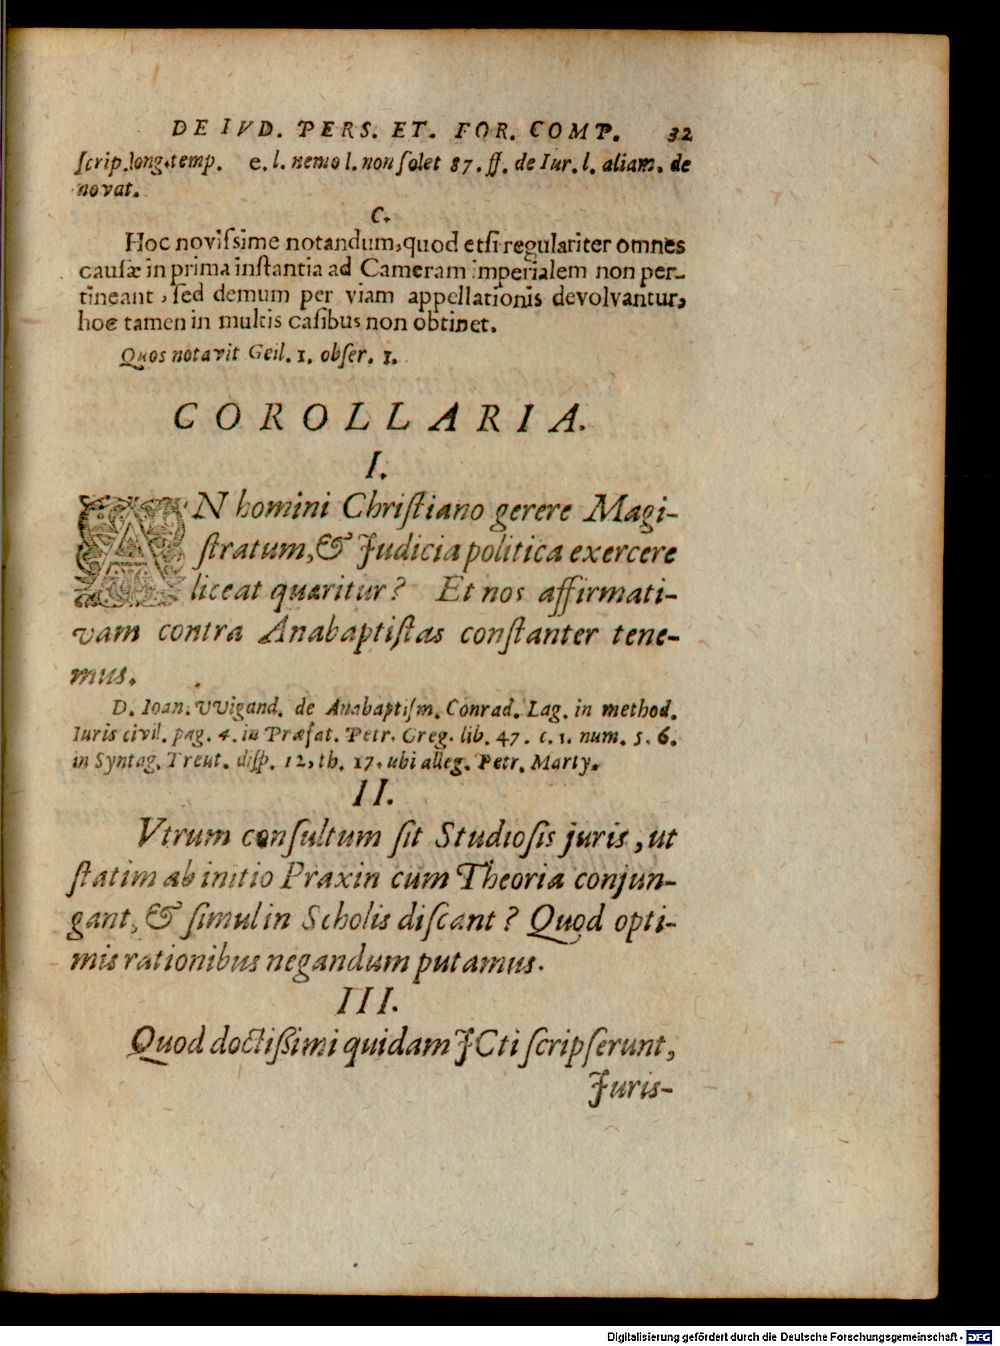 DE IVD. PERS. ET. FOR. COMP. 32
ſcrip. long. temp. e. l. nemo l. non ſolet 87. ff. de Iur. l. aliam. de
novat.
C.
Hoc noviſsime notandum, quod etſi regulariter omnes
cauſæ in prima inſtantia ad Cameram imperialem non per-
tineant, ſed demum per viam appellationis devolvantur,
hoc tamen in multis caſibus non obtinet.
Quos notavit Geil. 1. obſer. 1.
COROLLARIA.
I.
AN homini Chriſtiano gerere Magi-
ſtratum, & Judicia politica exercere
liceat quæritur? Et nos affirmati-
vam contra Anabaptiſtas conſtanter tene-
mus.
D. Ioan. VVigand. de Anabaptiſm. Conrad. Lag. in method.
Iuris civil. pag. 4. in Præfat. Petr. Greg. lib. 47. c. 1. num. 5. 6.
in Syntag. Treut. diſp. 12, th. 17. ubi alleg. Petr. Marty.
II.
Vtrum conſultum ſit Studioſis juris, ut
ſtatim ab initio Praxin cum Theoria conjun-
gant, & ſimul in Scholis diſcant? Quod opti-
mis rationibus negandum putamus.
III.
Quod doctiſſimi quidam JCti ſcripſerunt,
Juris-
Digitalisierung gefördert durch die Deutsche Forschungsgemeinschaft - DFG